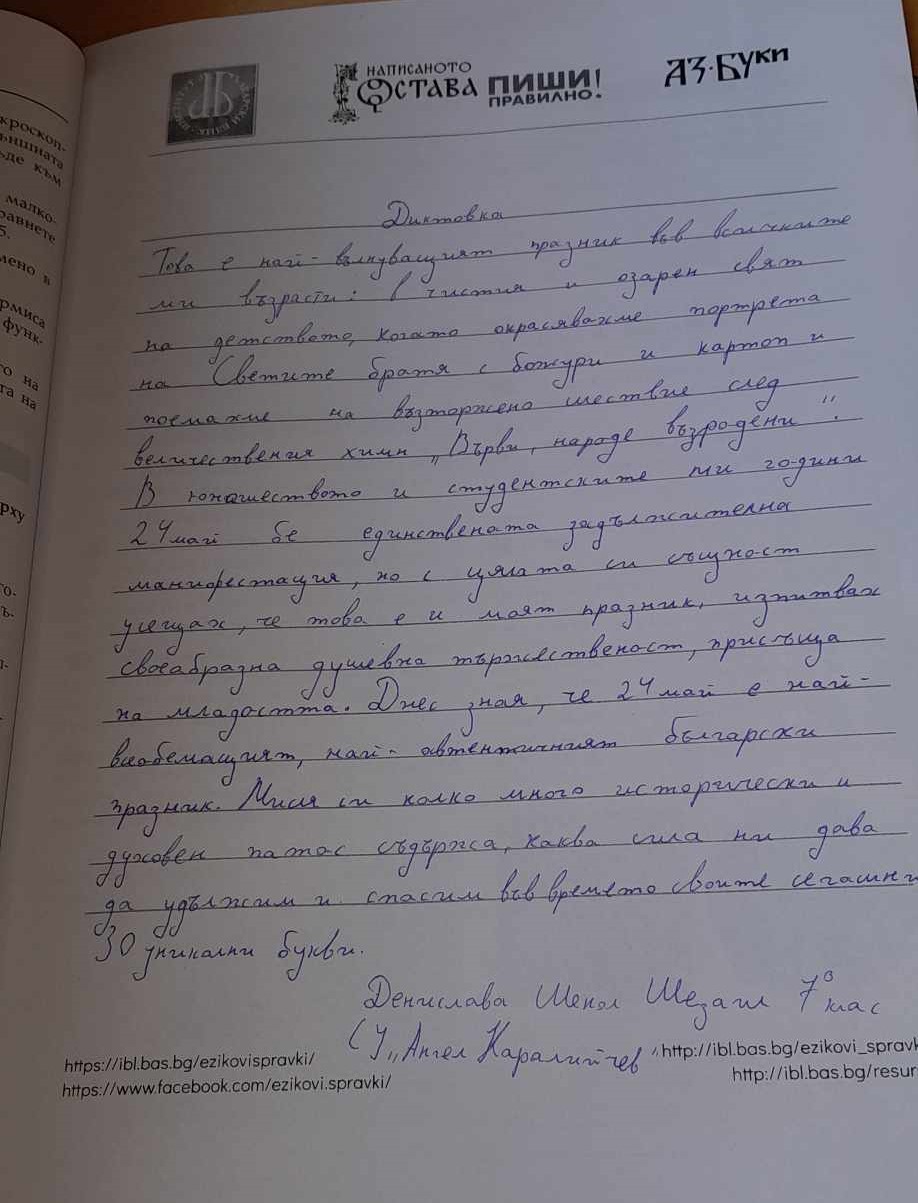 НАПИСАНОТО ОСТАВА ПИШИ ПРАВИЛНО!
АЗ·БУКИ
кроскоп-
ъншната
ъде към
малко-
равнете
5.
мено в
рмиса
функ-
то на
та на
рху
го-
ъ-
Диктовка
Това е най-вълнуващият празник във всичките
ми възрасти: в чистия и озарен свят
на детството, когато окрасявахме портрета
на Светите братя с божури и картоп и
поемахме на възторжено шествие след
величествения химн „Върви, народе възродени“.
В юношеството и студентските ми години
24 май бе единствената задължителна
манифестация, но с цялата си същност
усещах, че това е и моят празник, изпитвах
своеабразна душевна тържественост, присъща
на младостта. Днес зная, че 24 май е най-
всеобемащият, най-автентичният български
празник. Мисля си колко много исторически и
духовен патос съдържа, каква сила ни дава
да удължим и спасим във времето своите сегашни
30 уникални букви.
Денислава Шенол Шезаш 7в клас
СУ „Ангел Каралийчев“
https://ibl.bas.bg/ezikovispravki/
http://ibl.bas.bg/ezikovi_spravk
https://www.facebook.com/ezikovi.spravki/
http://ibl.bas.bg/resur